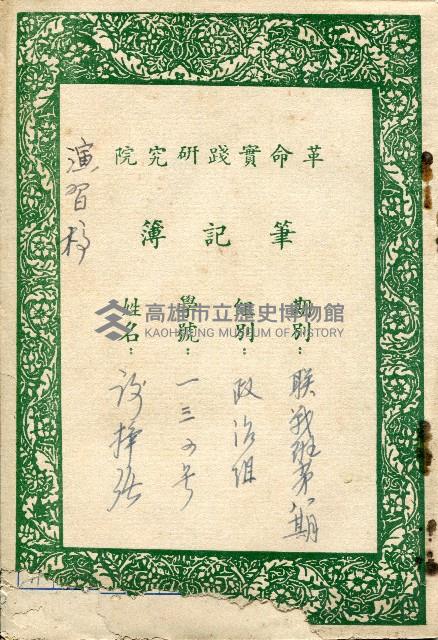 革命實踐研究院
筆記簿
期別：聯戰班第八期
組別：政治組
學號：一三四号
姓名：
演習稿
高雄市立歷史博物館
KAOHSIUNG MUSEUM OF HISTORY